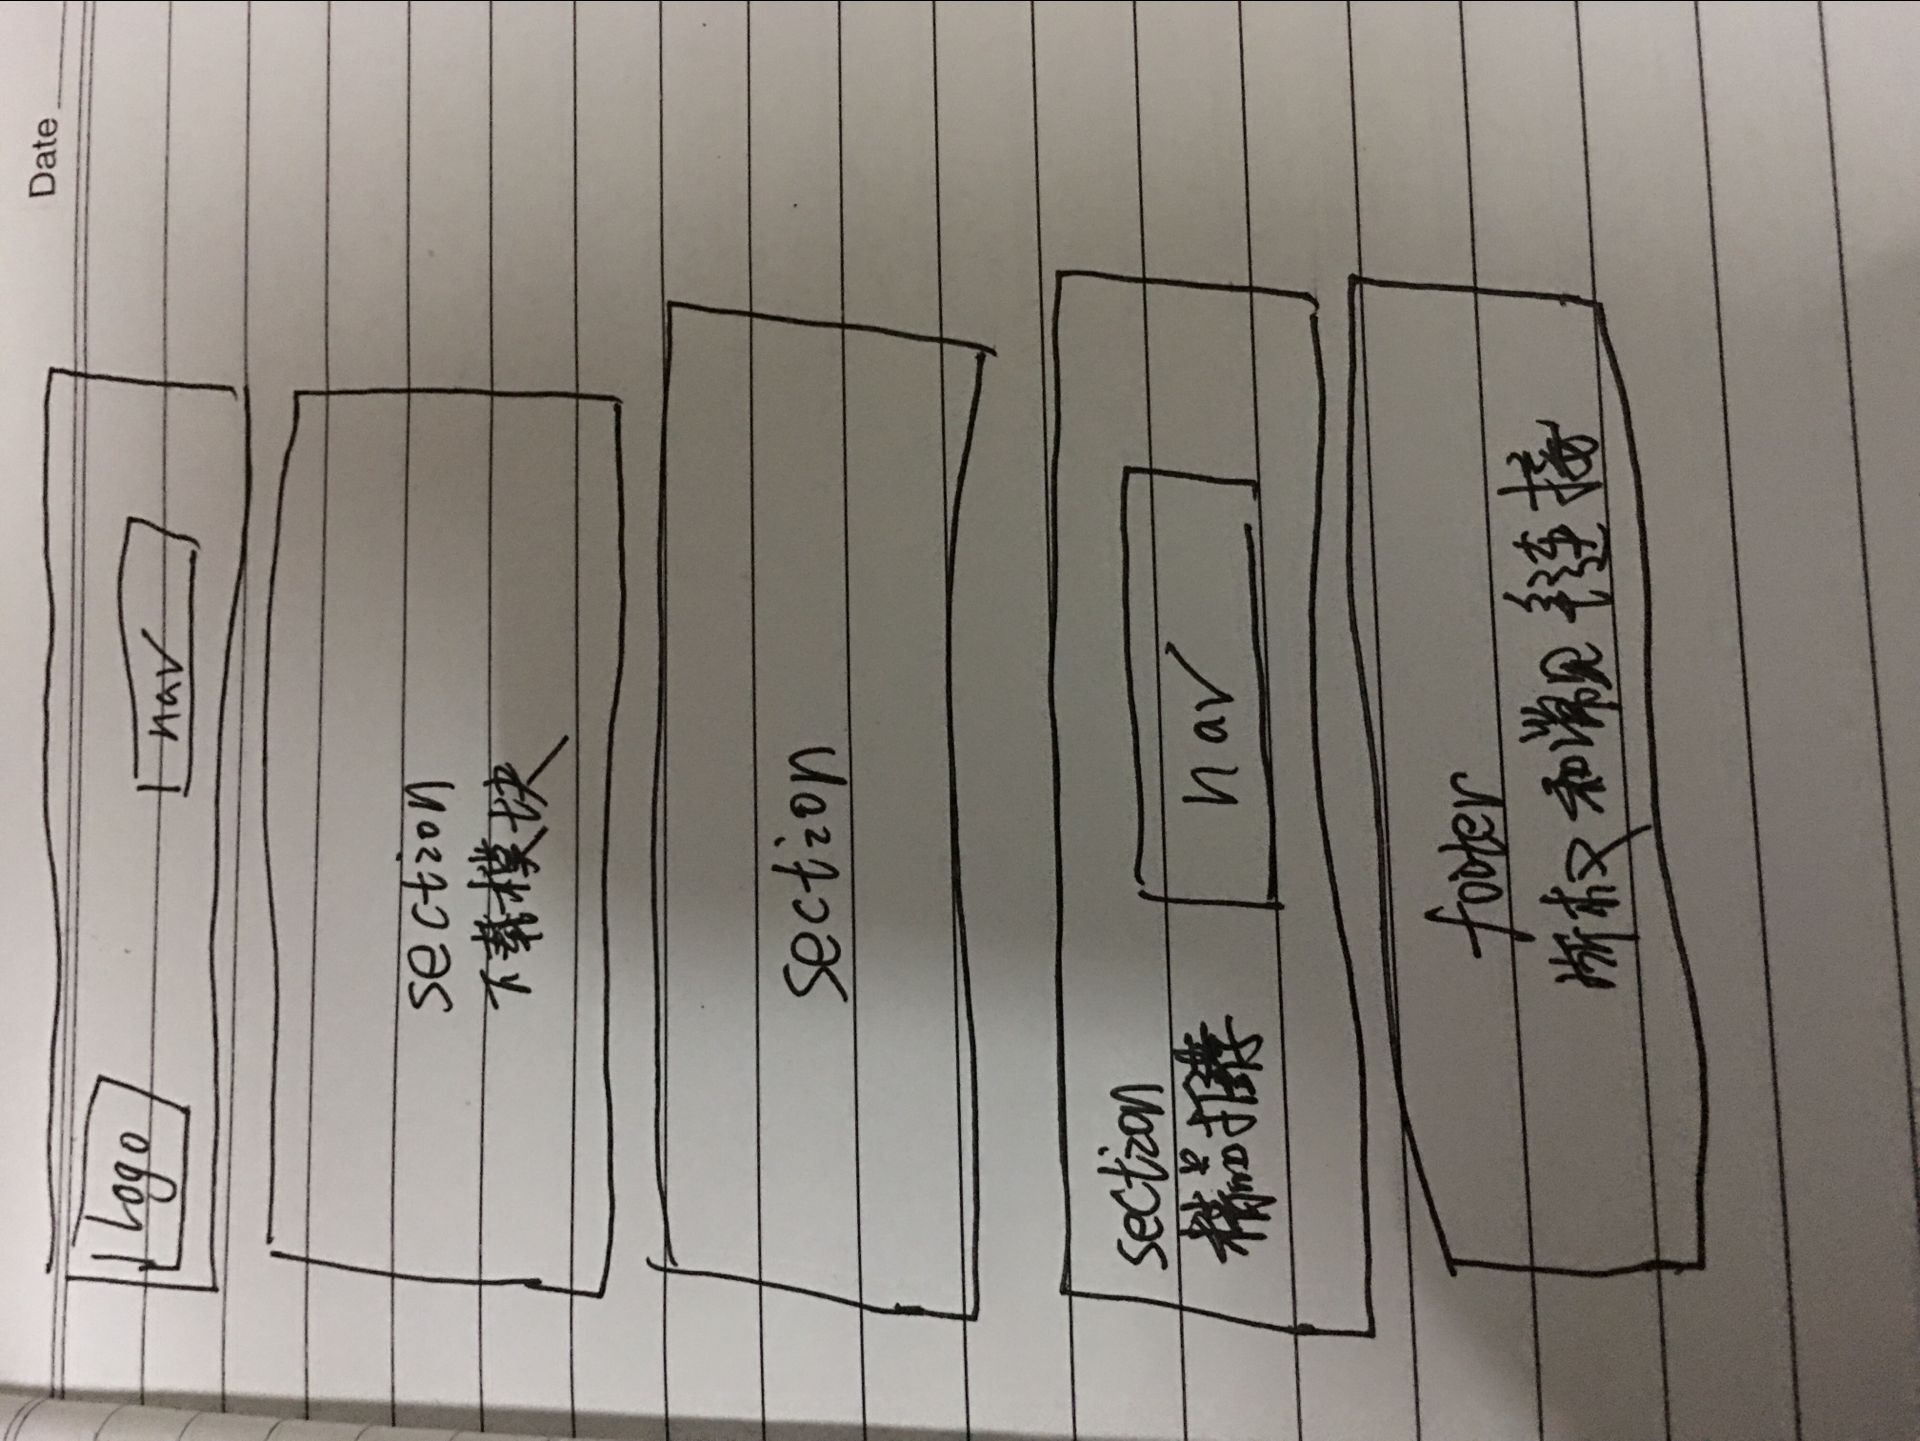 Date
Logo
nav
section
下载模块
section
section
精品推荐
nav
footer
版权和常见链接